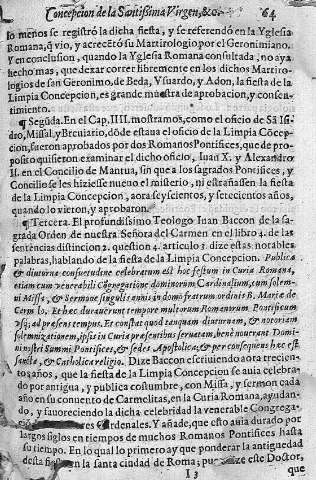 Concepcion de la Santissima Virgen, &c. 64
lo menos se registró la dicha fiesta, y se referendò en la Yglesia
Romana, q̃ vio, y acrecetó su Martirologio por el Geronimiano.
Y en conclusion, quando la Yglesia Romana consultada, no aya
hecho mas, que dexar correr libremente en los dichos Martiro-
logios de san Geronimo, de Beda, Vsuardo, y Adon, la fiesta de la
Limpia Concepcion, es grande muestra de aprobacion, y consen-
timiento.
¶ Segũda. En el Cap. IIII. mostramos, como el oficio de Sã Isi-
dro, Missal, y Breuiario, dõde estaua el oficio de la Limpia Cõcep-
cion, fueron aprobados por dos Romanos Pontifices, que de pro-
posito quisieron examinar el dicho oficio, Iuan X. y Alexandro
II. en el Concilio de Mantua, sin que a los sagrados Pontifices, y
Concilio se les hiziesse nueuo el misterio, ni estrañassen la fiesta
de la Limpia Concepcion, aora seyscientos, y setecientos años,
quando lo vieron, y aprobaron.
¶ Tercera. El profundissimo Teologo Iuan Baccon de la sa-
grada Orden de nuestra Señora del Carmen en el libro 4. de las
sentencias distincion 2. question 4. articulo 3. dize estas notables
palabras, hablando de la fiesta de la Limpia Concepcion. Publica
& diuturna consuetudine celebratum est hoc festum in Curia Romana,
etiam cum venerabili Cõgregatione dominorum Cardinalium, cum solem-
ni Missa, & Sermone singulis annis in domo fratrum ordinis B. Mariæ de
Carmelo. Et hoc durauerunt tempore multorum Romanorum Pontificum
vsq; ad præsens tempus. Et constat quod tanquam diuturnam, & notoriam
solemnizationem, ipsis in Curia præsentibus seruatam, bene nouerunt Domi-
ni nostri Summi Pontifices, & sedes Apostolica, & per consequens hæc est
sancta, & Catholica religio. Dize Baccon escriuiendo aora trecien-
tos años, que la fiesta de la Limpia Concepcion se auia celebra-
do por antigua, y publica costumbre, con Missa, y sermon cada
año en su conuento de Carmelitas, en la Curia Romana, ayudan-
do, y fauoreciendo a dicha celebridad la venerable Congrega-
Cardenales. Y añade, que esto auia durado por
largos siglos en tiempos de muchos Romanos Pontifices hasta
su tiempo. En lo qual lo primero ay que ponderar la antiguedad
desta fiesta en la santa ciudad de Roma; pues dize este Doctor,
I 3 que